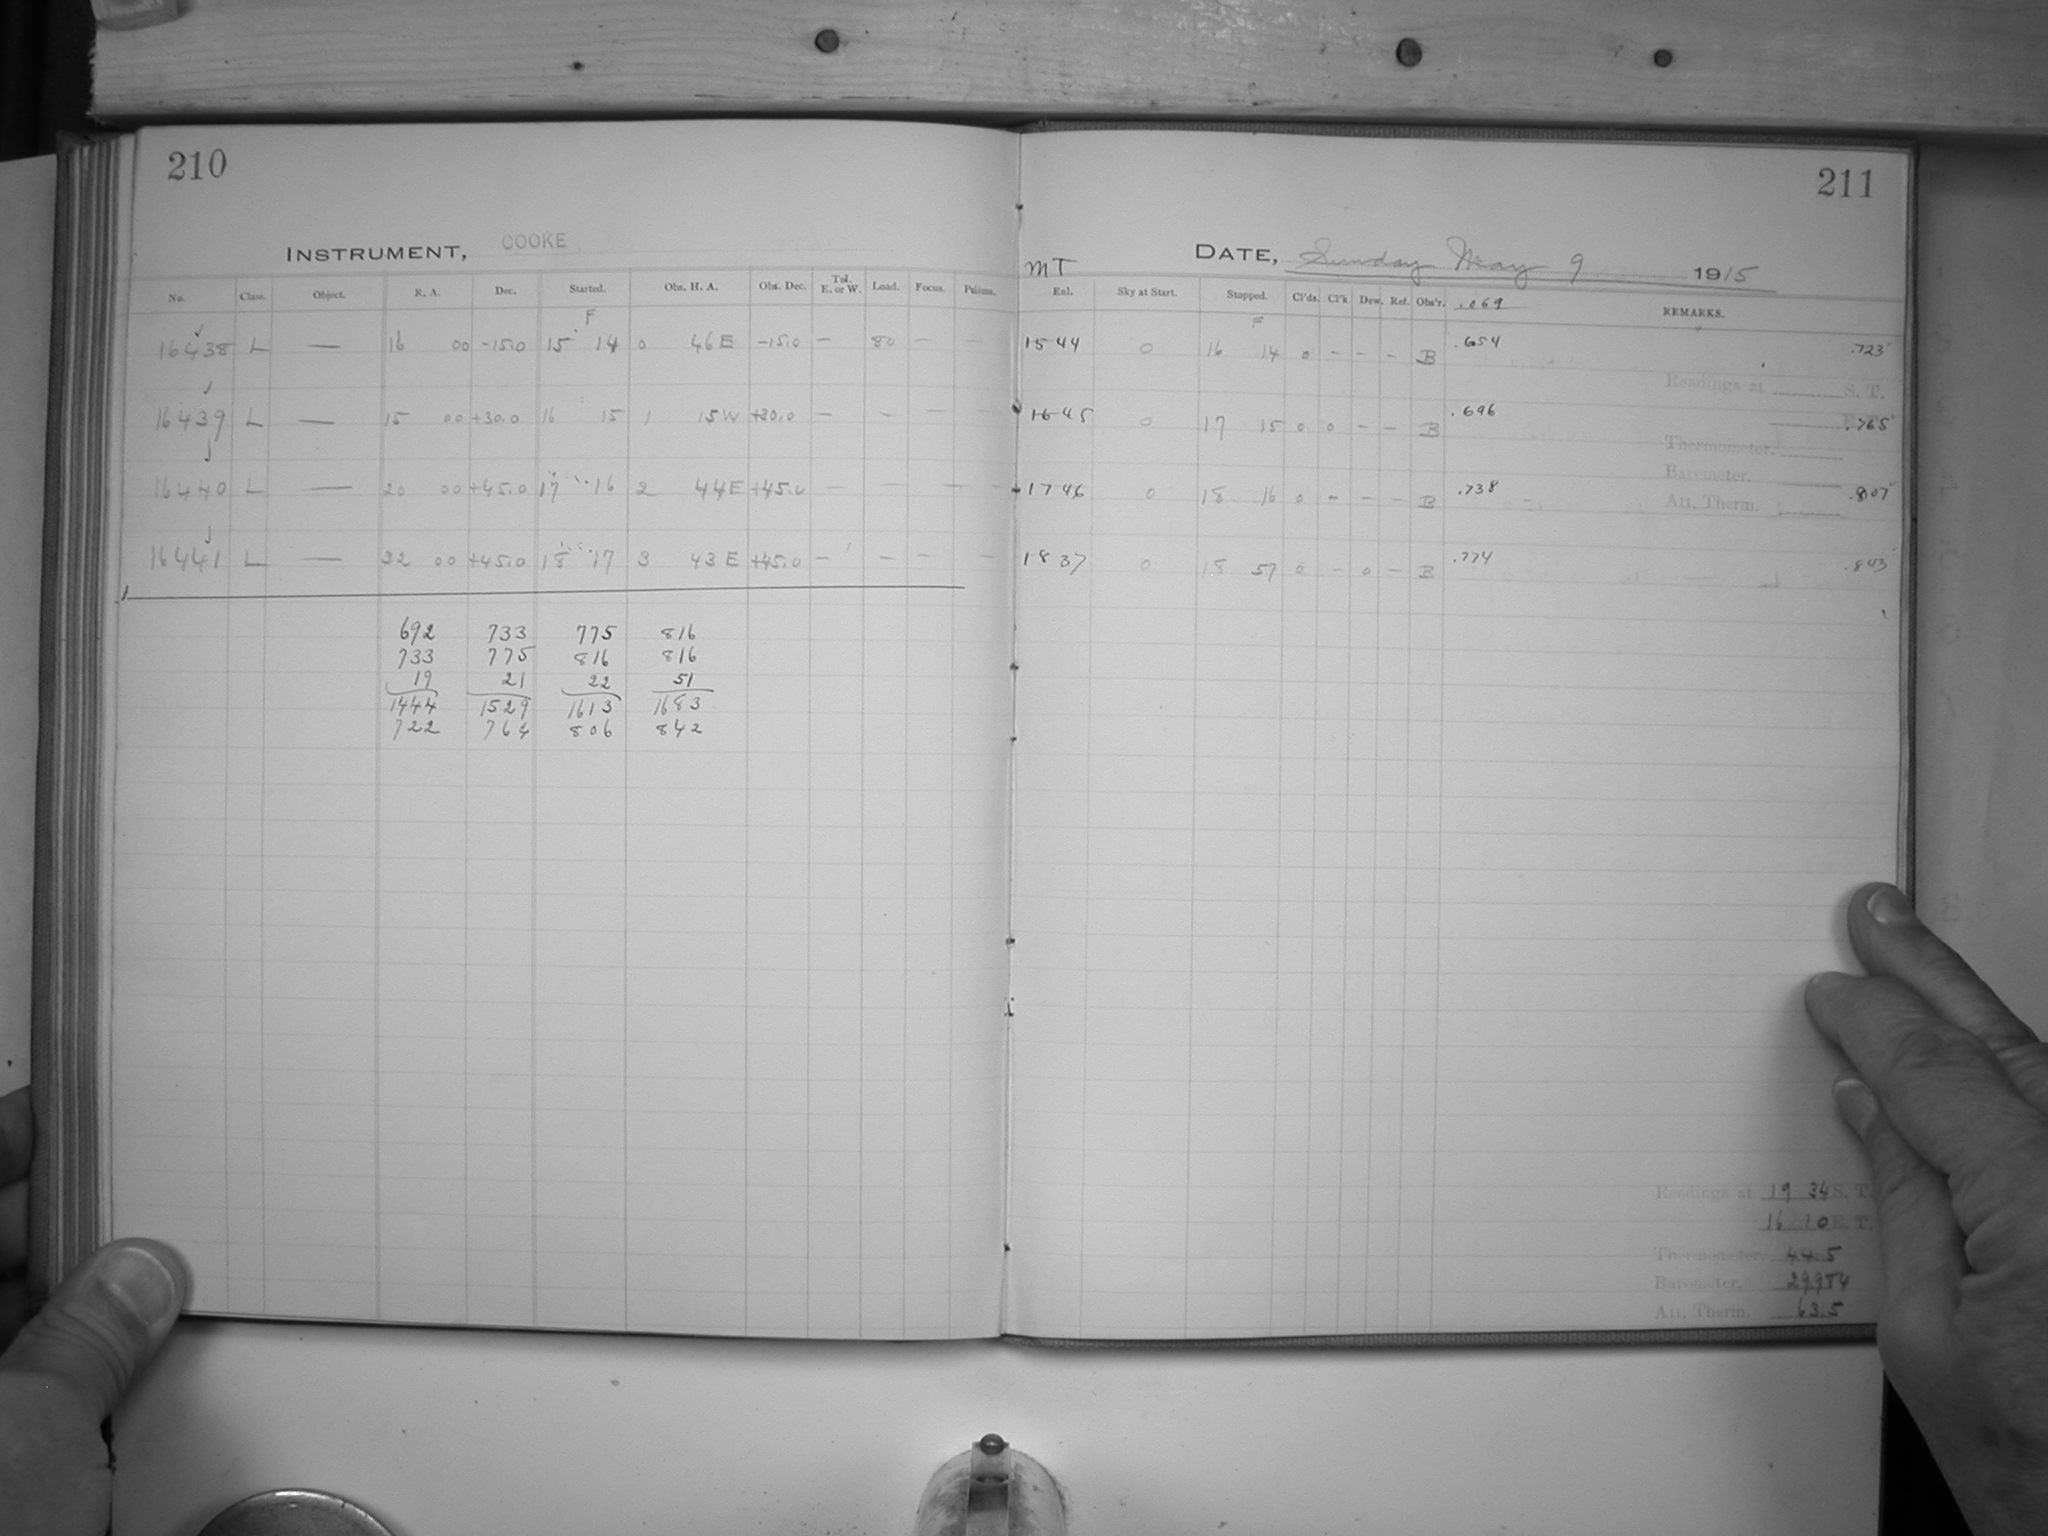 210
INSTRUMENT, COOKE
No. Class. Object. R. A. Dec. Started. Obs. H. A. Obs. Dec. Tel. E. or W. Load. Focus. Prisms.
F
16438 L — 16 00 -15.0 15 14 0 46 E -15.0 — 80 — —
16439 L — 15 00 +30.0 16 15 1 15 W +30.0 — — — —
16440 L — 20 00 +45.0 17 16 2 44 E +45.0 — — — —
16441 L — 22 00 +45.0 18 17 3 43 E +45.0 — — — —
692 733 775 816
733 775 816 816
19 21 22 51
1444 1529 1613 1683
722 764 806 842
211
DATE, Sunday May 9 1915
MT
Enl. Sky at Start. Stopped. Cl'ds. Cl'k Dew. Ref. Obs'r. .069 REMARKS.
F
15 44 0 16 14 0 - - - B .654 .723
Readings at S. T.
16 45 0 17 15 0 0 - - B .696 .765
Thermometer.
Barometer.
17 46 0 18 16 0 - - - B .738 .807
Att. Therm.
18 37 0 18 57 0 - 0 - B .774 .843
Readings at 19 34 S. T.
16 10 E. T.
Thermometer. 44.5
Barometer. 29.984
Att. Therm. 63.5